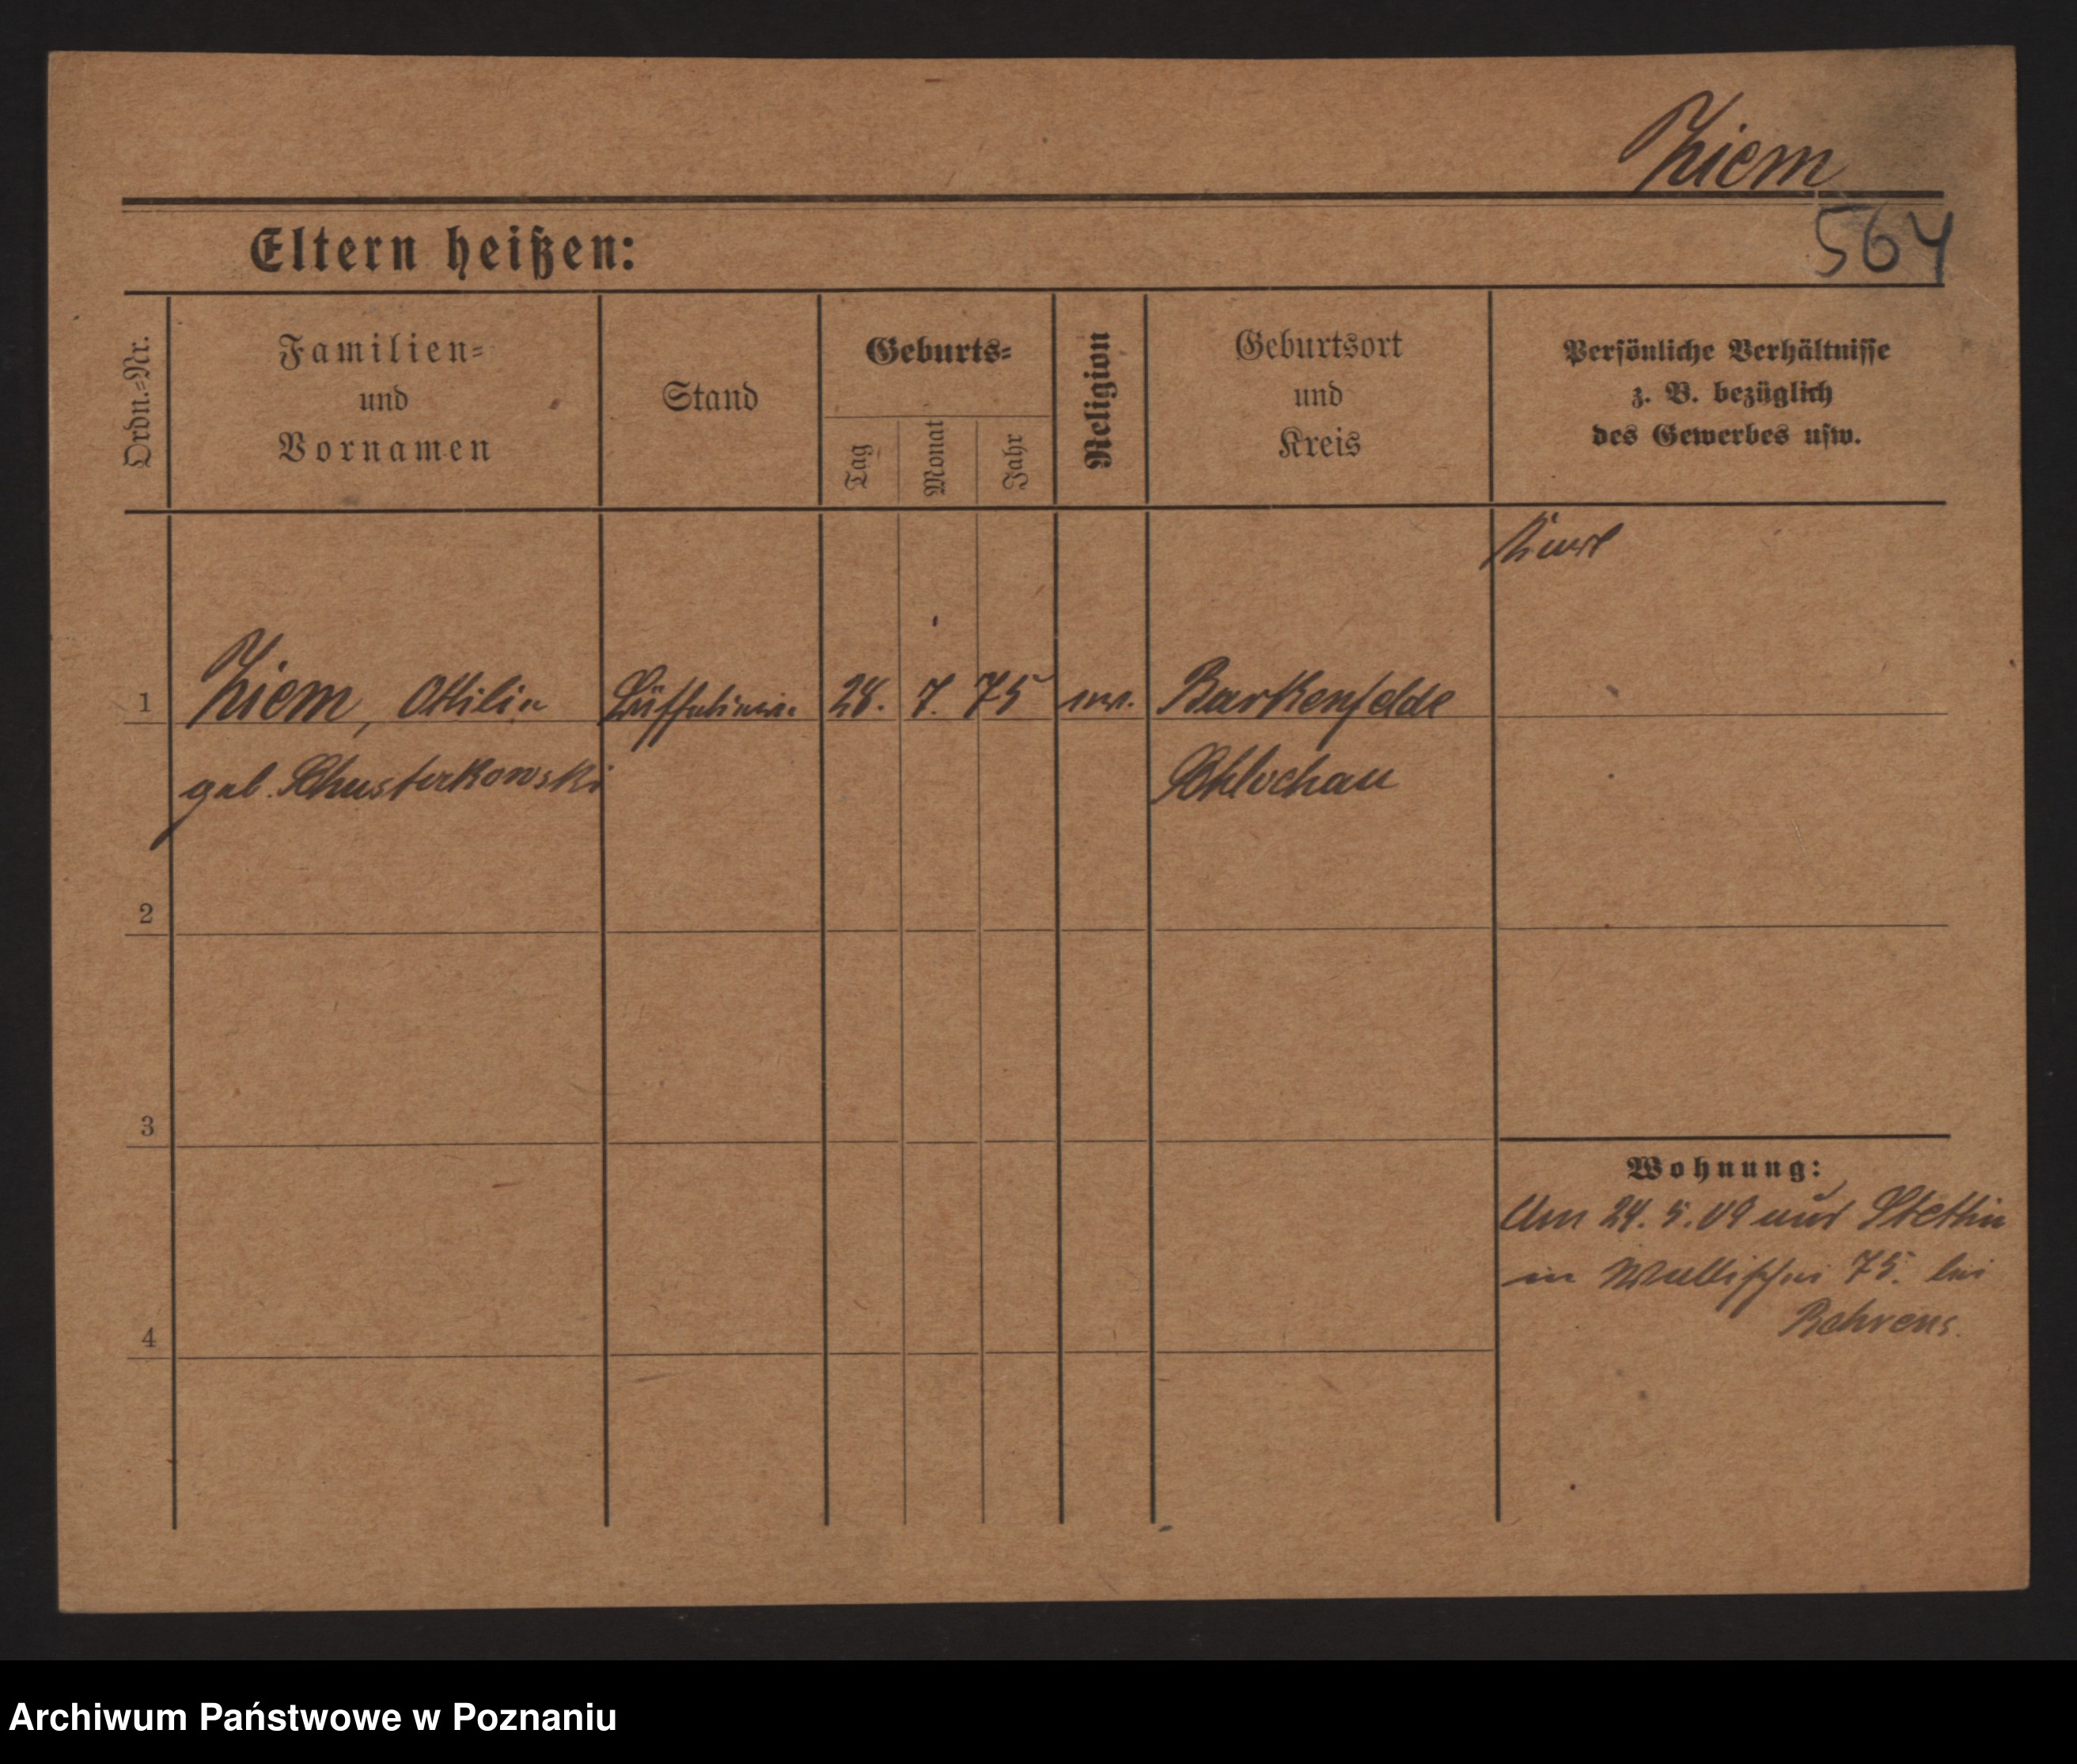 Ziem
564
Eltern heißen:
Ordn.=Nr.
Familien=
und
Vornamen
Stand
Geburts=
Tag
Monat
Jahr
Religion
Geburtsort
und
Kreis
Persönliche Verhältnisse
z. B. bezüglich
des Gewerbes usw.
1
Ziem, Ottilie
28. 7. 75
ev.
Barkenfelde
geb. Schusterkowski
Schlochau
2
3
4
Wohnung:
Am 24. 5. 09 aus Stettin
in Wallischei 75. bei
Behrens.
Archiwum Państwowe w Poznaniu